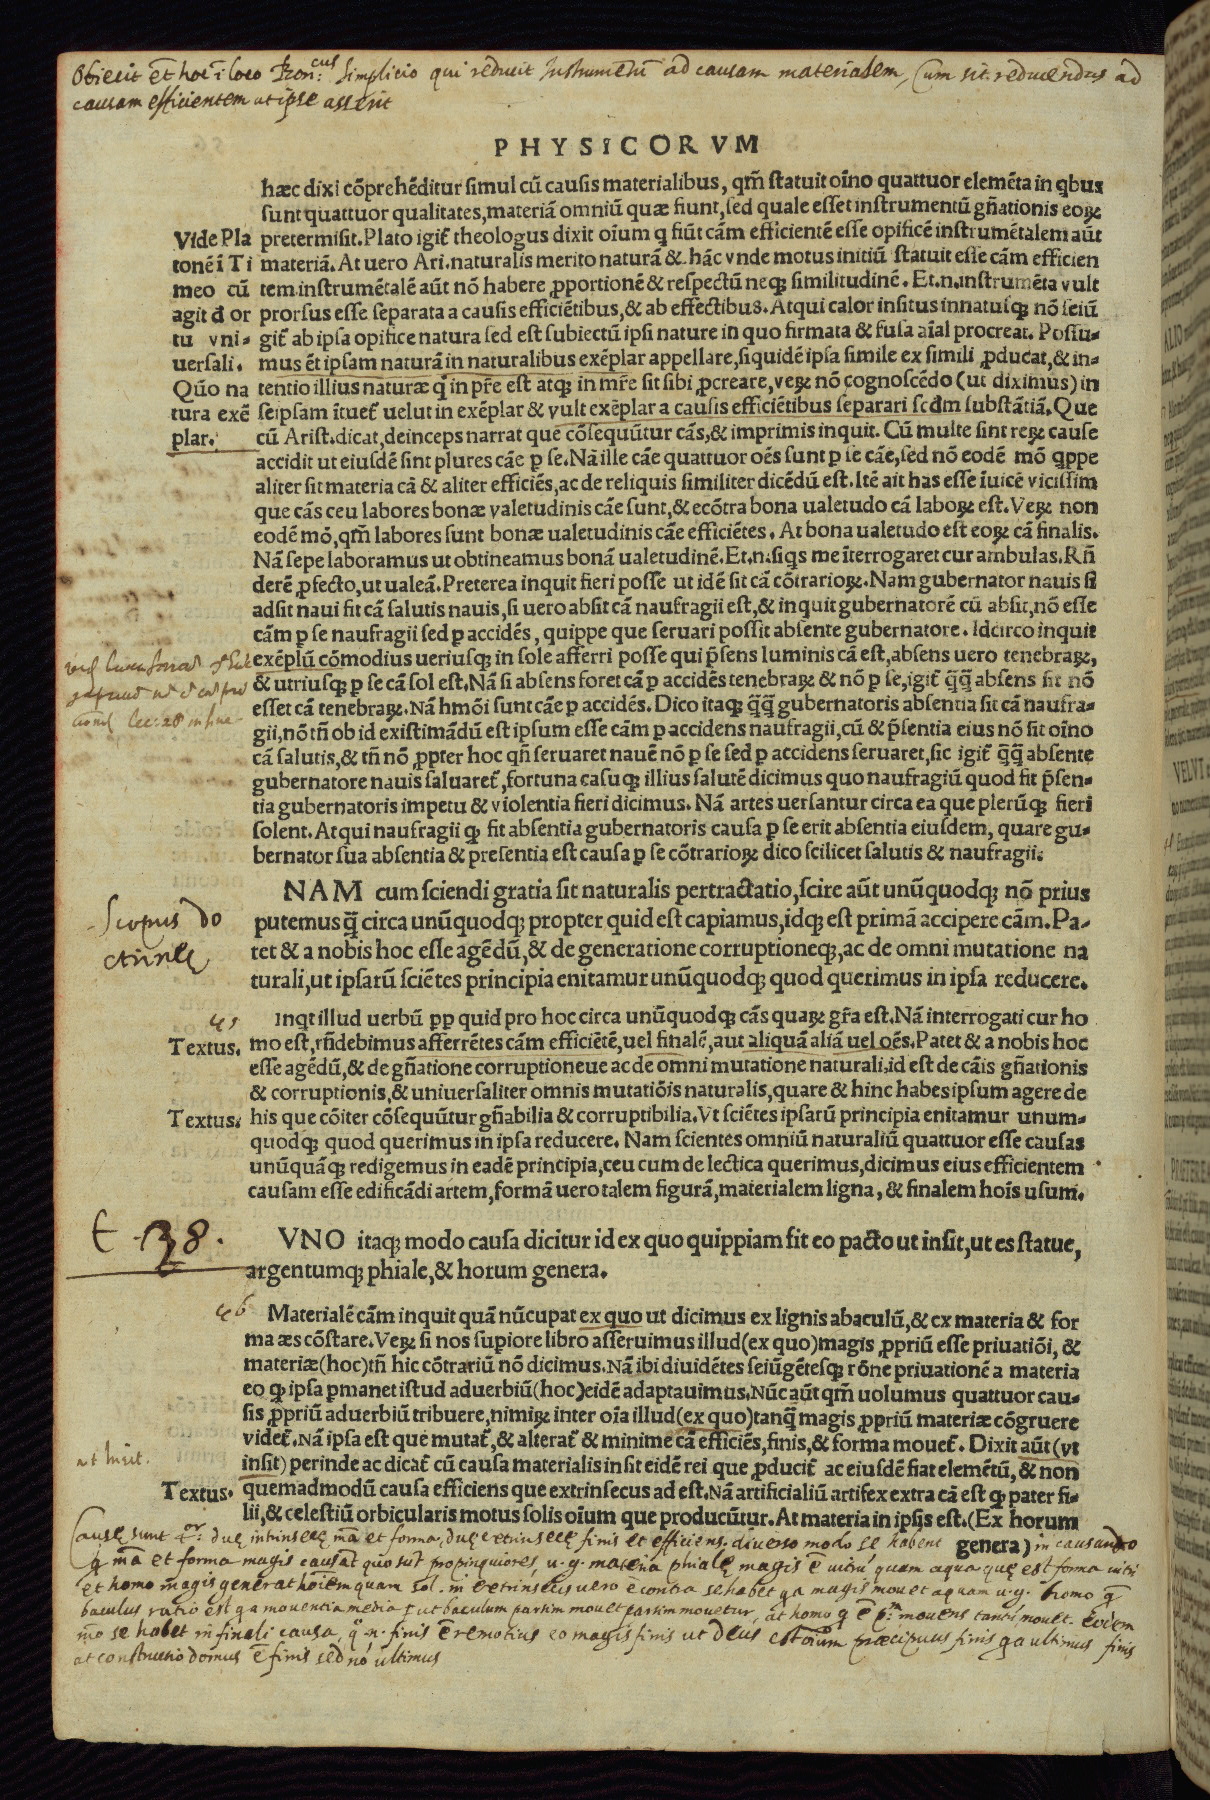 Obiecit et̃ hoc ĩ loco simplicio qui reducit Instrumẽtũ ad causam materialem, Cum sit reducendus ad
causam efficientem ut ipse asserit
PHYSICORVM
hæc dixi cõprehẽditur simul cũ causis materialibus, qm̃ statuit oĩno quattuor elemẽta in qbus
sunt quattuor qualitates, materiã omniũ quæ fiunt, sed quale esset instrumentũ gñationis eoꝝ
Vide Pla
tonẽ ĩ Ti
meo cũ
agit đ or
tu vni-
uersali.
Qũo na
tura exẽ
plar.
pretermisit. Plato igit̃ theologus dixit oĩum q fiũt cãm efficientẽ esse opificẽ instrumẽtalem aũt
materiã. At uero Ari. naturalis merito naturã & hãc vnde motus initiũ statuit esse cãm efficien
tem instrumẽtalẽ aũt nõ habere ꝓportionẽ & respectũ neqꝫ similitudinẽ. Et.n. instrumẽta vult
prorsus esse separata a causis efficiẽtibus, & ab effectibus. Atqui calor insitus innatusqꝫ nõ seiũ
git̃ ab ipsa opifice natura sed est subiectũ ipsi nature in quo firmata & fusa aĩal procreat. Possu-
mus ẽt ipsam naturã in naturalibus exẽplar appellare, siquidẽ ipsa simile ex simili ꝓducat, & in-
tentio illius naturæ q̃ in pr̃e est atqꝫ in mr̃e sit sibi ꝓcreare, veꝝ nõ cognoscẽdo (ut diximus) in
seipsam ĩtuet̃ uelut in exẽplar & vult exẽplar a causis efficiẽtibus separari scđm substãtiã. Que
cũ Arist. dicat, deinceps narrat que cõsequũtur cãs, & imprimis inquit. Cũ multe sint reꝝ cause
accidit ut eiusdẽ sint plures cãe ꝑ se. Nã ille cãe quattuor oẽs sunt ꝑ se cãe, sed nõ eodẽ mõ qppe
aliter sit materia cã & aliter efficiẽs, ac de reliquis similiter dicẽdũ est. Itẽ ait has esse ĩuicẽ vicissim
que cãs ceu labores bonæ valetudinis cãe sunt, & ecõtra bona ualetudo cã laboꝝ est. Veꝝ non
eodẽ mõ, qm̃ labores sunt bonæ ualetudinis cãe efficiẽtes. At bona ualetudo est eoꝝ cã finalis.
Nã sepe laboramus ut obtineamus bonã ualetudinẽ. Et.n. siqs me ĩterrogaret cur ambulas. Rñ
derẽ ꝓfecto, ut ualeã. Preterea inquit fieri posse ut idẽ sit cã cõtrarioꝝ. Nam gubernator nauis si
adsit naui fit cã salutis nauis, si uero absit cã naufragii est, & inquit gubernatorẽ cũ absit, nõ esse
cãm ꝑ se naufragii sed ꝑ accidẽs, quippe que seruari possit absente gubernatore. Idcirco inquit
exẽplũ cõmodius ueriusqꝫ in sole afferri posse qui p̃sens luminis cã est, absens uero tenebraꝝ,
& utriusqꝫ ꝑ se cã sol est. Nã si absens foret cã ꝑ accidẽs tenebraꝝ & nõ ꝑ se, igit̃ q̃q̃ absens sit nõ
esset cã tenebraꝝ. Nã hmõi sunt cãe ꝑ accidẽs. Dico itaqꝫ q̃q̃ gubernatoris absentia sit cã naufra-
gii, nõ tñ ob id existimãdũ est ipsum esse cãm ꝑ accidens naufragii, cũ & p̃sentia eius nõ sit oĩno
cã salutis, & tñ nõ ꝓpter hoc qñ seruaret nauẽ nõ ꝑ se sed ꝑ accidens seruaret, sic igit̃ q̃q̃ absente
gubernatore nauis saluaret̃, fortuna casuqꝫ illius salutẽ dicimus quo naufragiũ quod fit p̃sen-
tia gubernatoris impetu & violentia fieri dicimus. Nã artes uersantur circa ea que plerũqꝫ fieri
solent. Atqui naufragii qꝫ fit absentia gubernatoris causa ꝑ se erit absentia eiusdem, quare gu-
bernator sua absentia & presentia est causa ꝑ se cõtrarioꝝ dico scilicet salutis & naufragii.
Scopus do
ctrinę
NAM cum sciendi gratia sit naturalis pertractatio, scire aũt unũquodqꝫ nõ prius
putemus q̃ circa unũquodqꝫ propter quid est capiamus, idqꝫ est primã accipere cãm. Pa-
tet & a nobis hoc esse agẽdũ, & de generatione corruptioneqꝫ, ac de omni mutatione na
turali, ut ipsarũ sciẽtes principia enitamur unũquodqꝫ quod querimus in ipsa reducere.
Inqt illud uerbũ ꝓp quid pro hoc circa unũquodqꝫ cãs quaꝝ gr̃a est. Nã interrogati cur ho
Textus.
mo est, rñdebimus afferrẽtes cãm efficiẽtẽ, uel finalẽ, aut aliquã aliã uel oẽs. Patet & a nobis hoc
esse agẽdũ, & de gñatione corruptioneue ac de omni mutatione naturali. id est de cãis gñationis
& corruptionis, & uniuersaliter omnis mutatiõis naturalis, quare & hinc habes ipsum agere de
Textus.
his que cõiter cõsequũtur gñabilia & corruptibilia. Vt sciẽtes ipsarũ principia enitamur unum-
quodqꝫ quod querimus in ipsa reducere. Nam scientes omniũ naturaliũ quattuor esse causas
unũquãqꝫ redigemus in eadẽ principia, ceu cum de lectica querimus, dicimus eius efficientem
causam esse edificãdi artem, formã uero talem figurã, materialem ligna, & finalem hoĩs usum.
VNO itaqꝫ modo causa dicitur id ex quo quippiam fit eo pacto ut insit, ut es statue,
argentumqꝫ phiale, & horum genera.
Materialẽ cãm inquit quã nũcupat ex quo ut dicimus ex lignis abaculũ, & ex materia & for
ma æs cõstare. Veꝝ si nos supiore libro asseruimus illud (ex quo) magis ꝓpriũ esse priuatiõi, &
materiæ (hoc) tñ hic cõtrariũ nõ dicimus. Nã ibi diuidẽtes seiũgẽtesqꝫ rõne priuationẽ a materia
eo qꝫ ipsa ꝑmanet istud aduerbiũ (hoc) eidẽ adaptauimus. Nũc aũt qm̃ uolumus quattuor cau-
sis ꝓpriũ aduerbiũ tribuere, nimiꝝ inter oĩa illud (ex quo) tanq̃ magis ꝓpriũ materiæ cõgruere
videt̃. Nã ipsa est que mutat̃, & alterat̃ & minime cã efficiẽs, finis, & forma mouet̃. Dixit aũt (vt
ut insit.
insit) perinde ac dicat̃ cũ causa materialis insit eidẽ rei que ꝓducit̃ ac eiusdẽ fiat elemẽtũ, & non
Textus.
quemadmodũ causa efficiens que extrinsecus ad est. Nã artificialiũ artifex extra cã est qꝫ pater fi-
lii, & celestiũ orbicularis motus solis oĩum que producũtur. At materia in ipsis est. (Ex horum
genera)
Causę sunt 4or: duę intrinsecę mã et forma, duę extrinsecę finis et efficiens. diuerso modo se habent in causando
q̃ mã et forma magis causãt quo sũt propinquiores, u.g. materia phialę magis ẽ uitrũ quam aqua quę est forma uitri
et homo magis generat hoĩem quam sol. in extrinsecis uero e contra se habet qa magis mouet aquam u.g. homo q̃
baculus ratio est qa mouentia media ut baculum partim mouet partim mouetur, at homo q ẽ pm mouens tantũ mouet. Eodem
mõ se habet in finali causa, q̃.n. finis ẽ remotius eo magis finis ut Deus est oĩum præcipuus finis qa ultimus finis
at constructio domus ẽ finis sed nõ ultimus